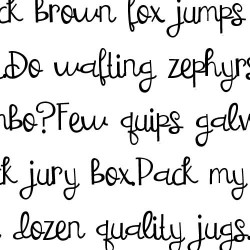 ck brown fox jumps
.Do wafting zephyrs
mbo?Few quips galv
ck jury box.Pack my
dozen quality jugs